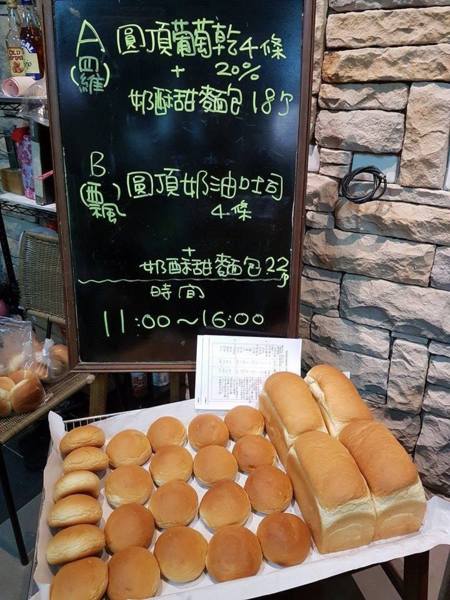 A 圓頂葡萄乾4條
(羅) + 20%
奶酥甜麵包18个
B
(飄) 圓頂奶油吐司
4條
+
奶酥甜麵包22个
時間
11:00~16:00